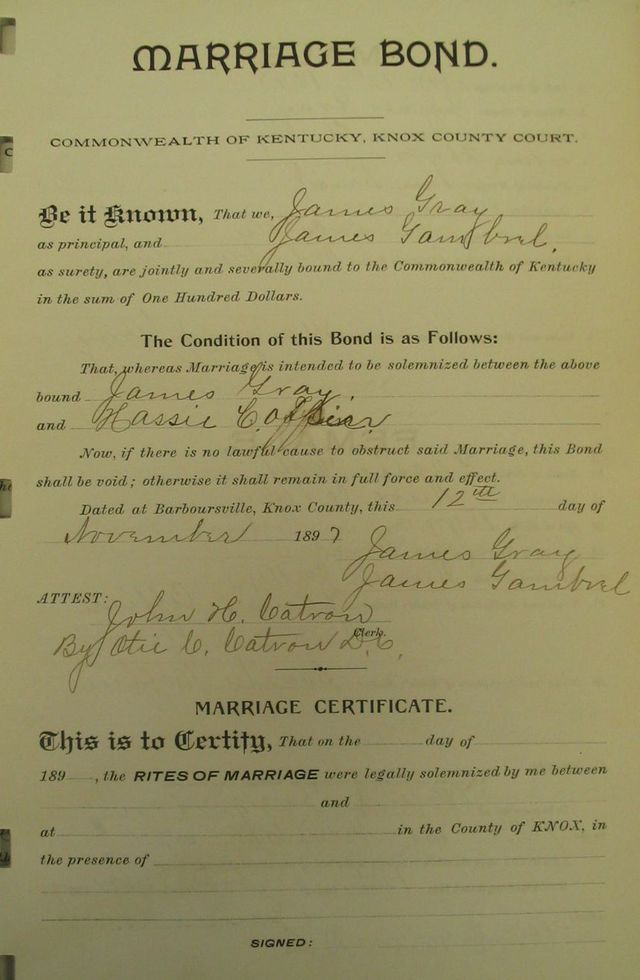 MARRIAGE BOND.
COMMONWEALTH OF KENTUCKY, KNOX COUNTY COURT.
Be it Known, That we, James Gray
as principal, and James Gambrel,
as surety, are jointly and severally bound to the Commonwealth of Kentucky
in the sum of One Hundred Dollars.
The Condition of this Bond is as Follows:
That, whereas Marriage is intended to be solemnized between the above
bound James Gray,
and Hassie
Now, if there is no lawful cause to obstruct said Marriage, this Bond
shall be void; otherwise it shall remain in full force and effect.
Dated at Barboursville, Knox County, this 12th day of
November 1897
James Gray
James Gambrel
ATTEST:
John H. Catron
Clerk.
By Otie C. Catron D.C.
MARRIAGE CERTIFICATE.
This is to Certify, That on the day of
189 , the RITES OF MARRIAGE were legally solemnized by me between
and
at in the County of KNOX, in
the presence of
SIGNED: